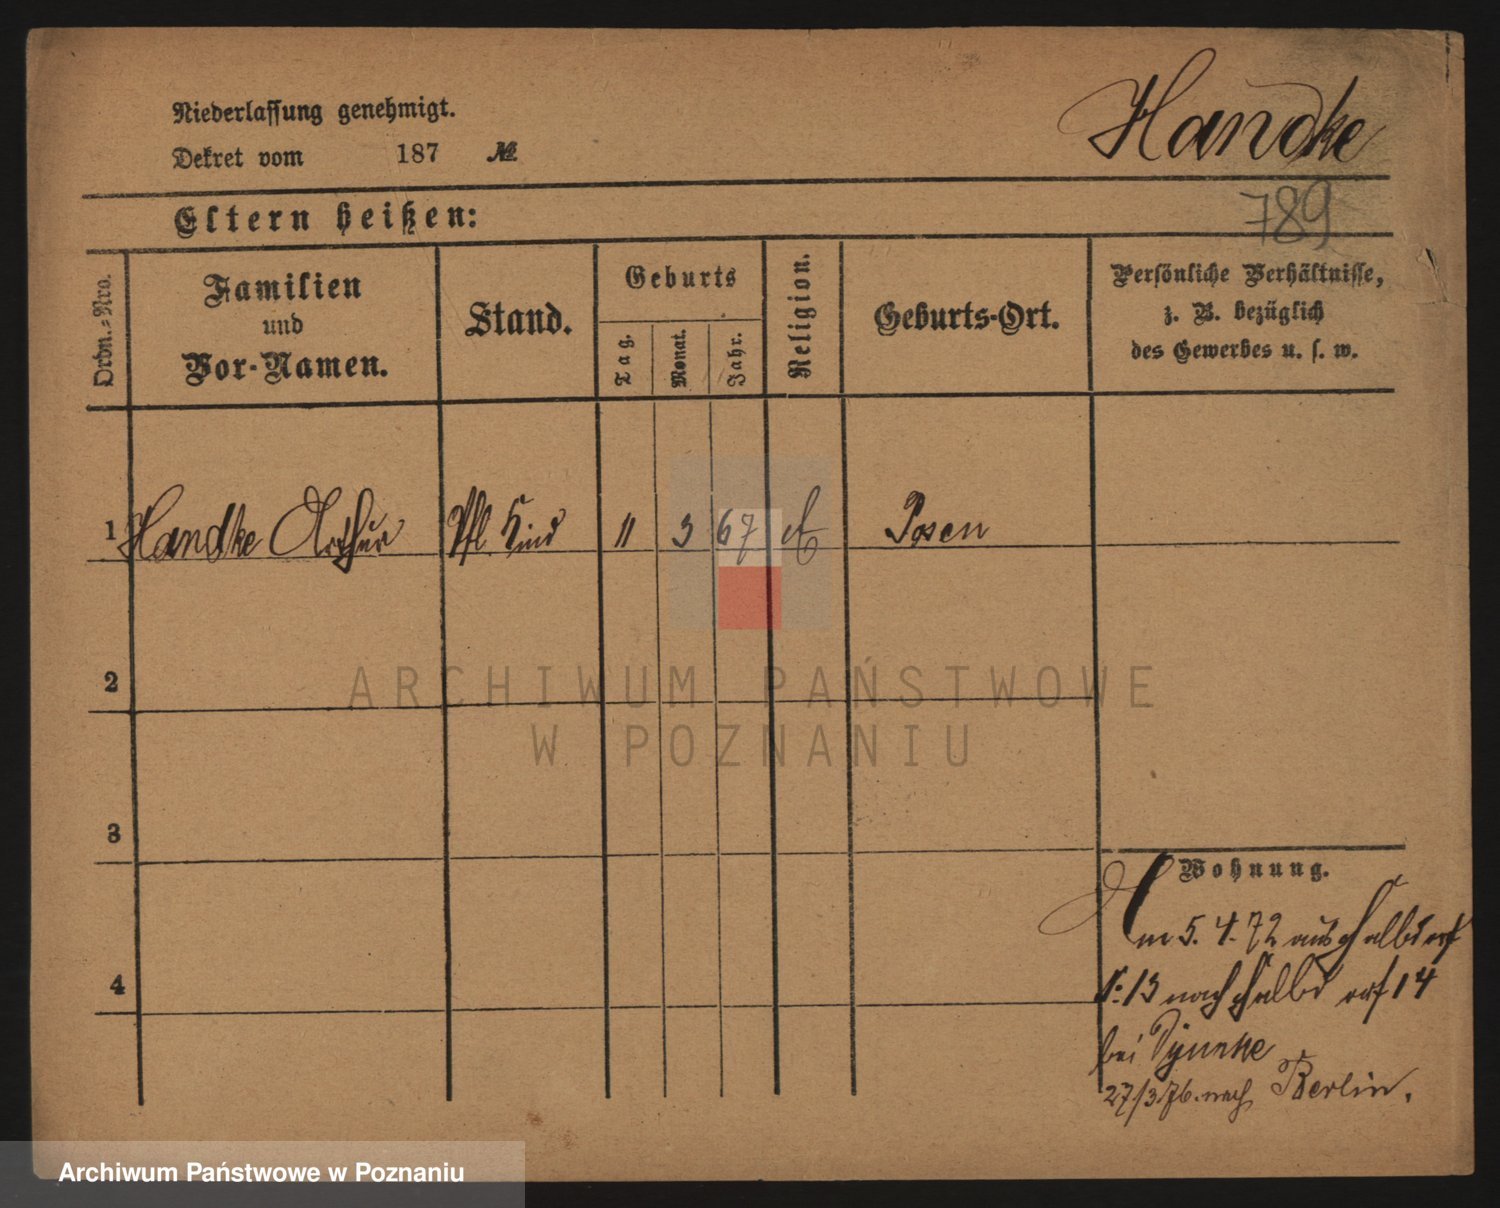 Niederlassung genehmigt.
Dekret vom 187 №
Handke
789
Eltern heißen:
Ordn.-Nro.
Familien
und
Vor-Namen.
Stand.
Geburts
Tag.
Monat.
Jahr.
Religion.
Geburts-Ort.
Persönliche Verhältnisse,
z. B. bezüglich
des Gewerbes u. s. w.
1 Handke Arthur Pfl. Kind 11 3 67 Posen
2
3
4
Wohnung.
Am 5. 4. 72 aus Halbdorf
13 nach Halbdorf 14
bei
27/3 76. nach Berlin.
ARCHIWUM PAŃSTWOWE
W POZNANIU
Archiwum Państwowe w Poznaniu